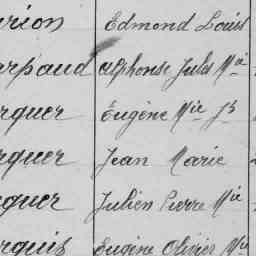 rion Edmond Louis
rpaud Alphonse Jules Mie
rquer Eugène Mie Jh
rquer Jean Marie
cquer Julien Pierre Mie
rquis Eugène Olivier Mie